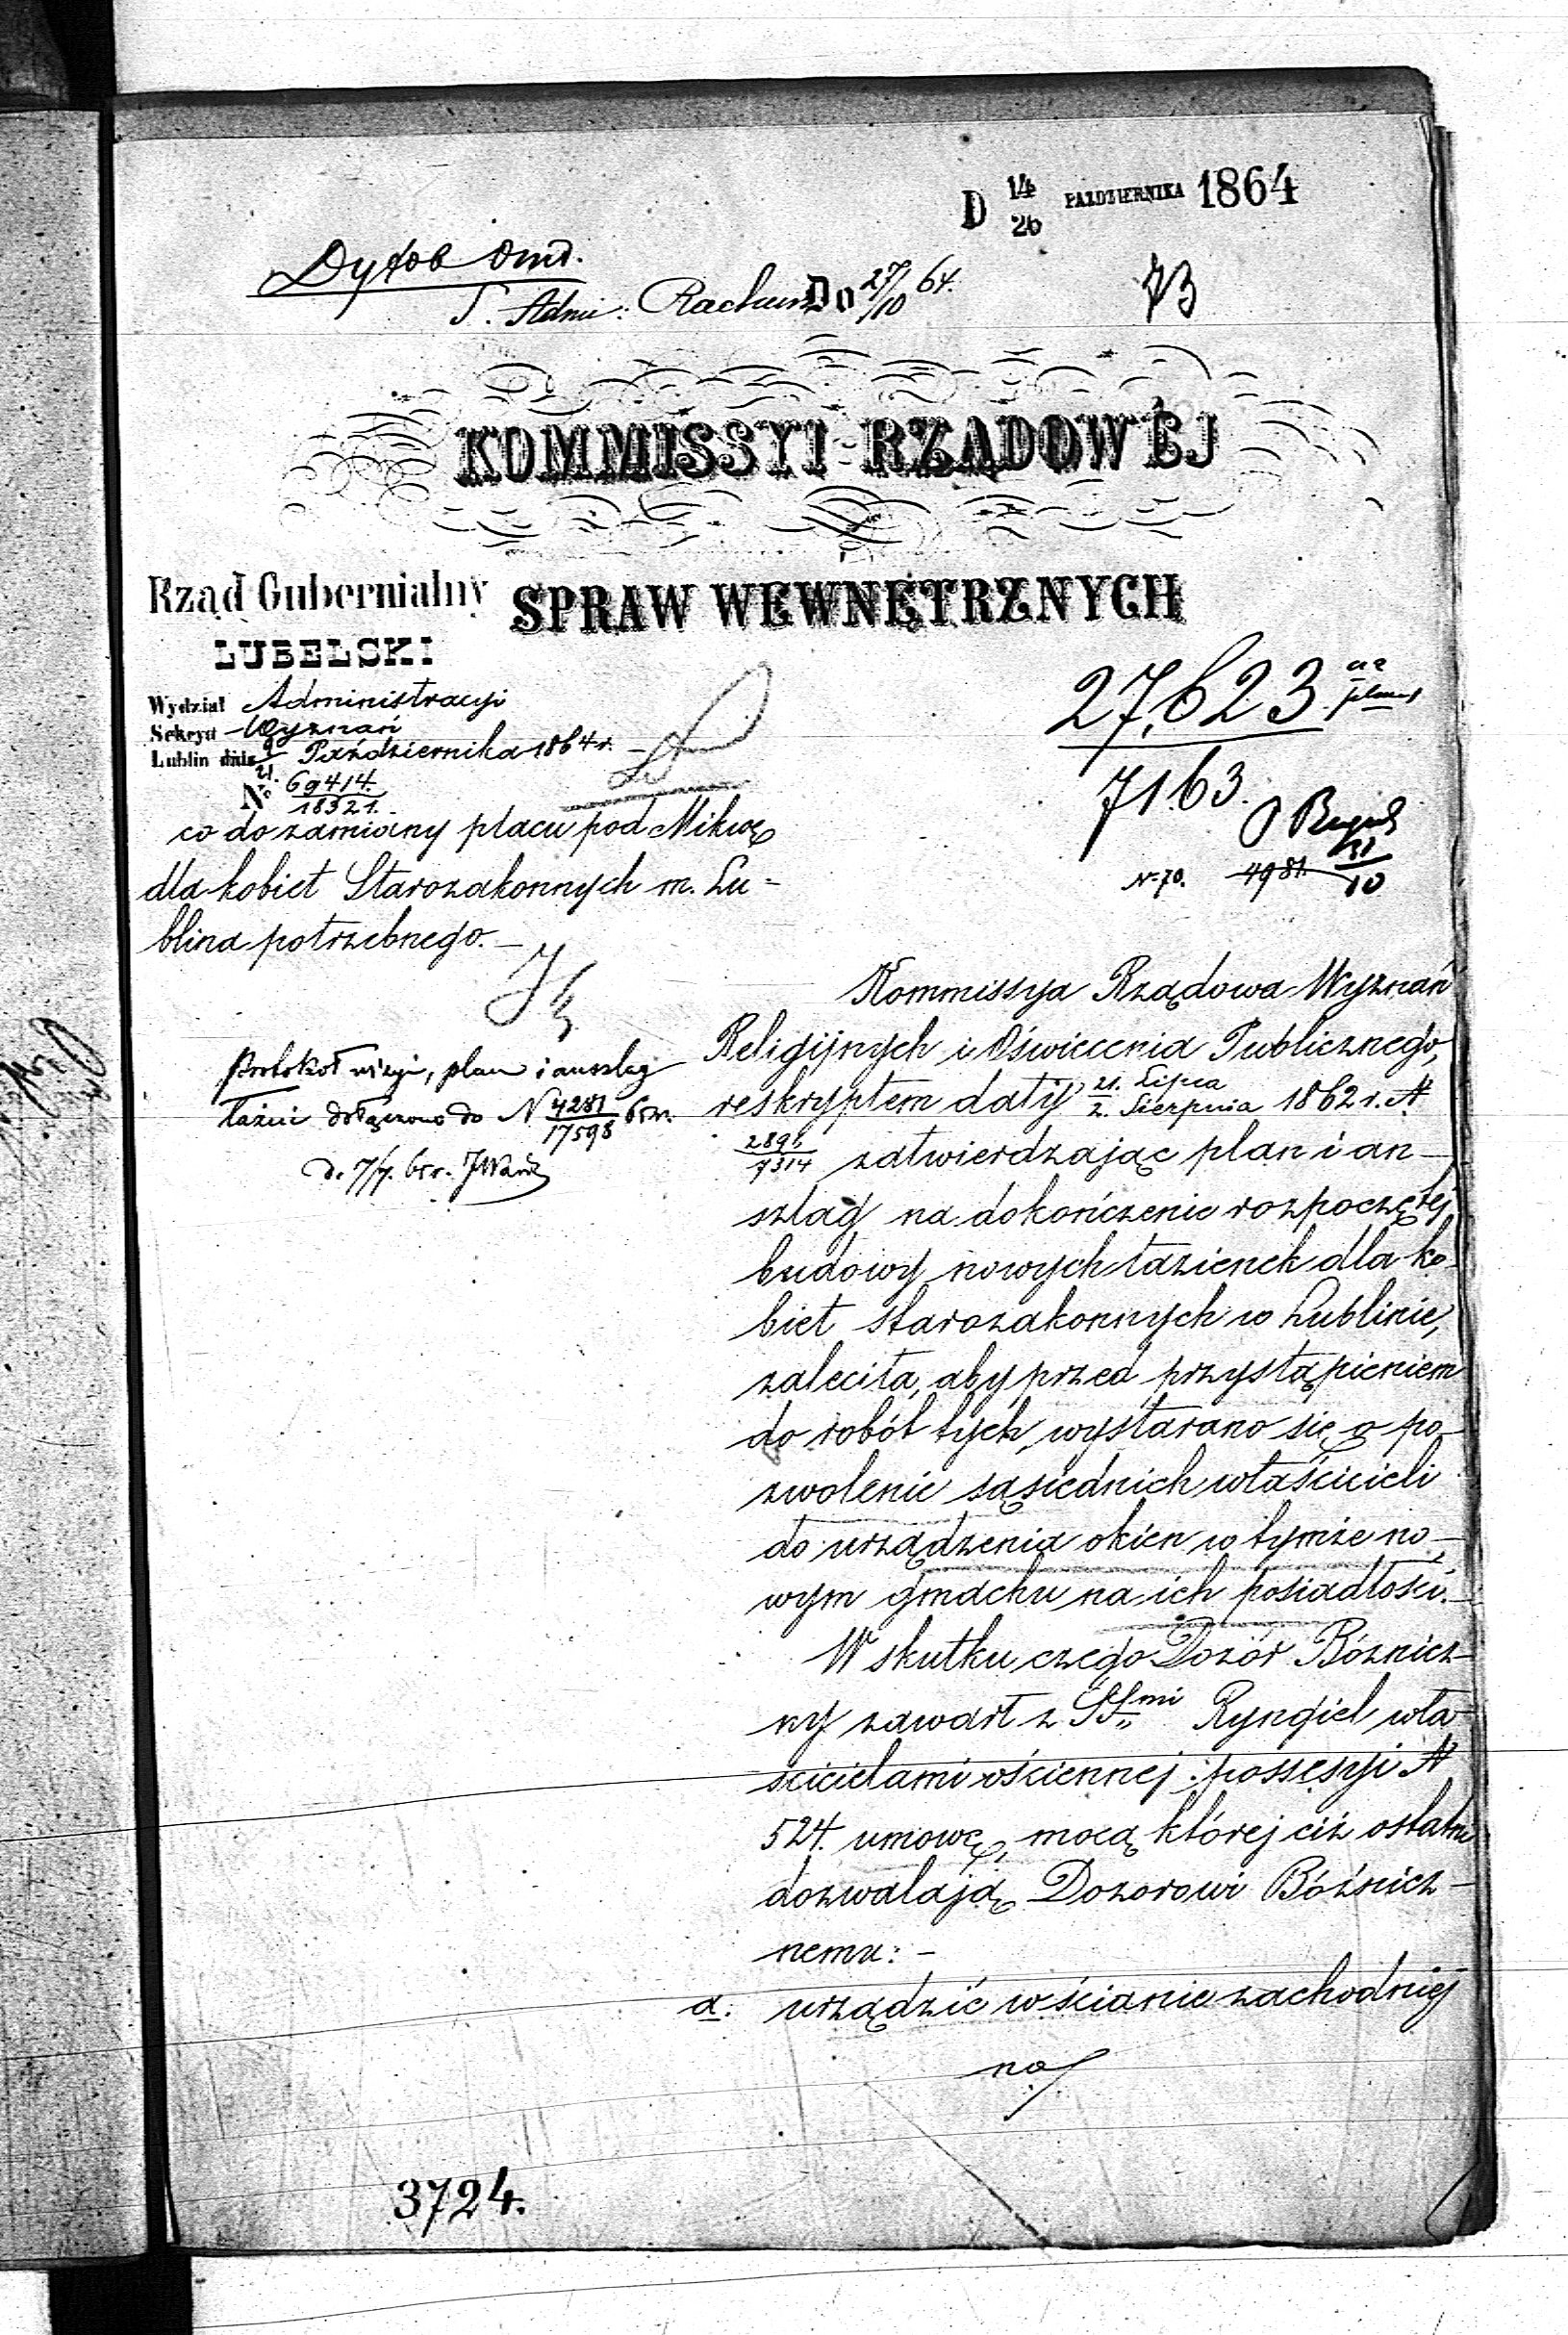 D 14/26 PAŹDZIERNIKA 1864
S. Admi: Rachun
Do 27/10 64.
73
KOMMISSYI RZĄDOWÉJ
SPRAW WEWNĘTRZNYCH
Rząd Gubernialny
LUBELSKI
Wydział Administracyi
Sekcya Wyznań
Lublin dnia 9/21 Października 1864 r.
№ 69414/18321.
co do zamiany placu pod Mikwę
dla kobiet Starozakonnych m. Lu-
blina potrzebnego.
27,623
7163.
31/10
N. 70. 4981.
protokół wizyi, plan i anszlag
łaźni dołączono do N 4281/17598 65 r.
d. 7/7. 65 r.
Kommissya Rządowa Wyznań
Religijnych i Oświecenia Publicznego,
reskryptem daty 21. Lipca/2. Sierpnia 1862 r. N.
2891/7314 zatwierdzając plan i an-
szlag na dokończenie rozpoczętej
budowy nowych łazienek dla ko-
biet starozakonnych w Lublinie,
zaleciła, aby przed przystąpieniem
do robót tych, wystarano się o po-
zwolenie sąsiednich właścicieli
do urządzenia okien w tymże no-
wym gmachu na ich posiadłości.
W skutku czego Dozór Bóżnicz-
ny zawarł z SS"mi Ryngiel wła-
ścicielami ościennej possesyi N
524. umowę, mocą której ciż ostatni
dozwalają Dozorowi Bóżnicz-
nemu: -
a. urządzić w ścianie zachodniej
na
3724.